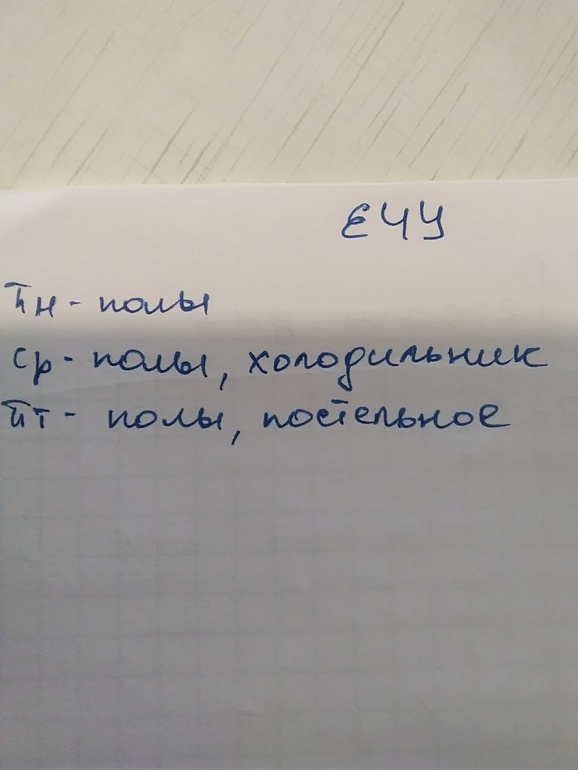 ЕЧУ
Пн - полы
Ср - полы, холодильник
Пт - полы, постельное